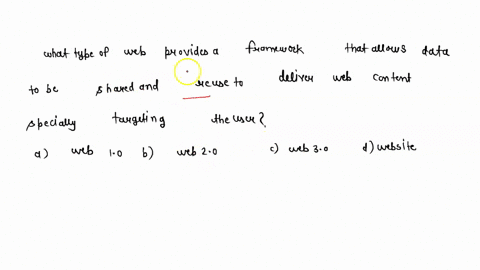 what type of web provides a framework that allows data
to be shared and reuse to deliver web content
specially targeting the user?
a) web 1.0 b) web 2.0 c) web 3.0 d) website